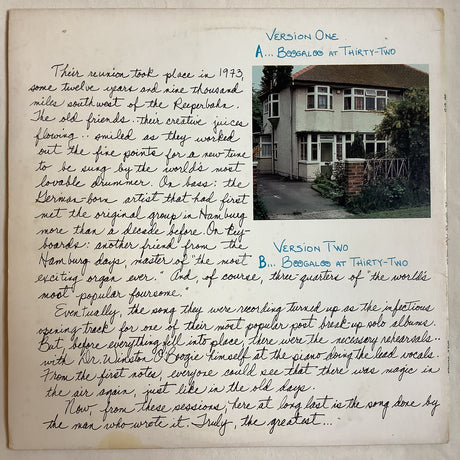 VERSION ONE
A... BOOGALOO AT THIRTY-TWO
Their reunion took place in 1973,
some twelve years and nine thousand
miles southwest of the Reeperbahn.
The old friends.. their creative juices
flowing.. smiled as they worked
out the fine points for a new tune
to be sung by the world's most
lovable drummer. On bass: the
German-born artist that had first
met the original group in Hamburg
more than a decade before. On Key-
boards: another friend from the
Hamburg days, master of "the most
exciting organ ever." And, of course, three-quarters of "the world's
most popular foursome."
VERSION TWO
B... BOOGALOO AT THIRTY-TWO
Eventually, the song they were recording turned up as the infectious
opening-track for one of their most popular post break up solo albums.
But, before everything fell into place, there were the necessary rehearsals..
with Dr. Winston O'Boogie himself at the piano doing the lead vocals.
From the first notes, everyone could see that there was magic in
the air again, just like in the old days.
Now, from these sessions, here at long last is the song done by
the man who wrote it. Truly, the greatest...